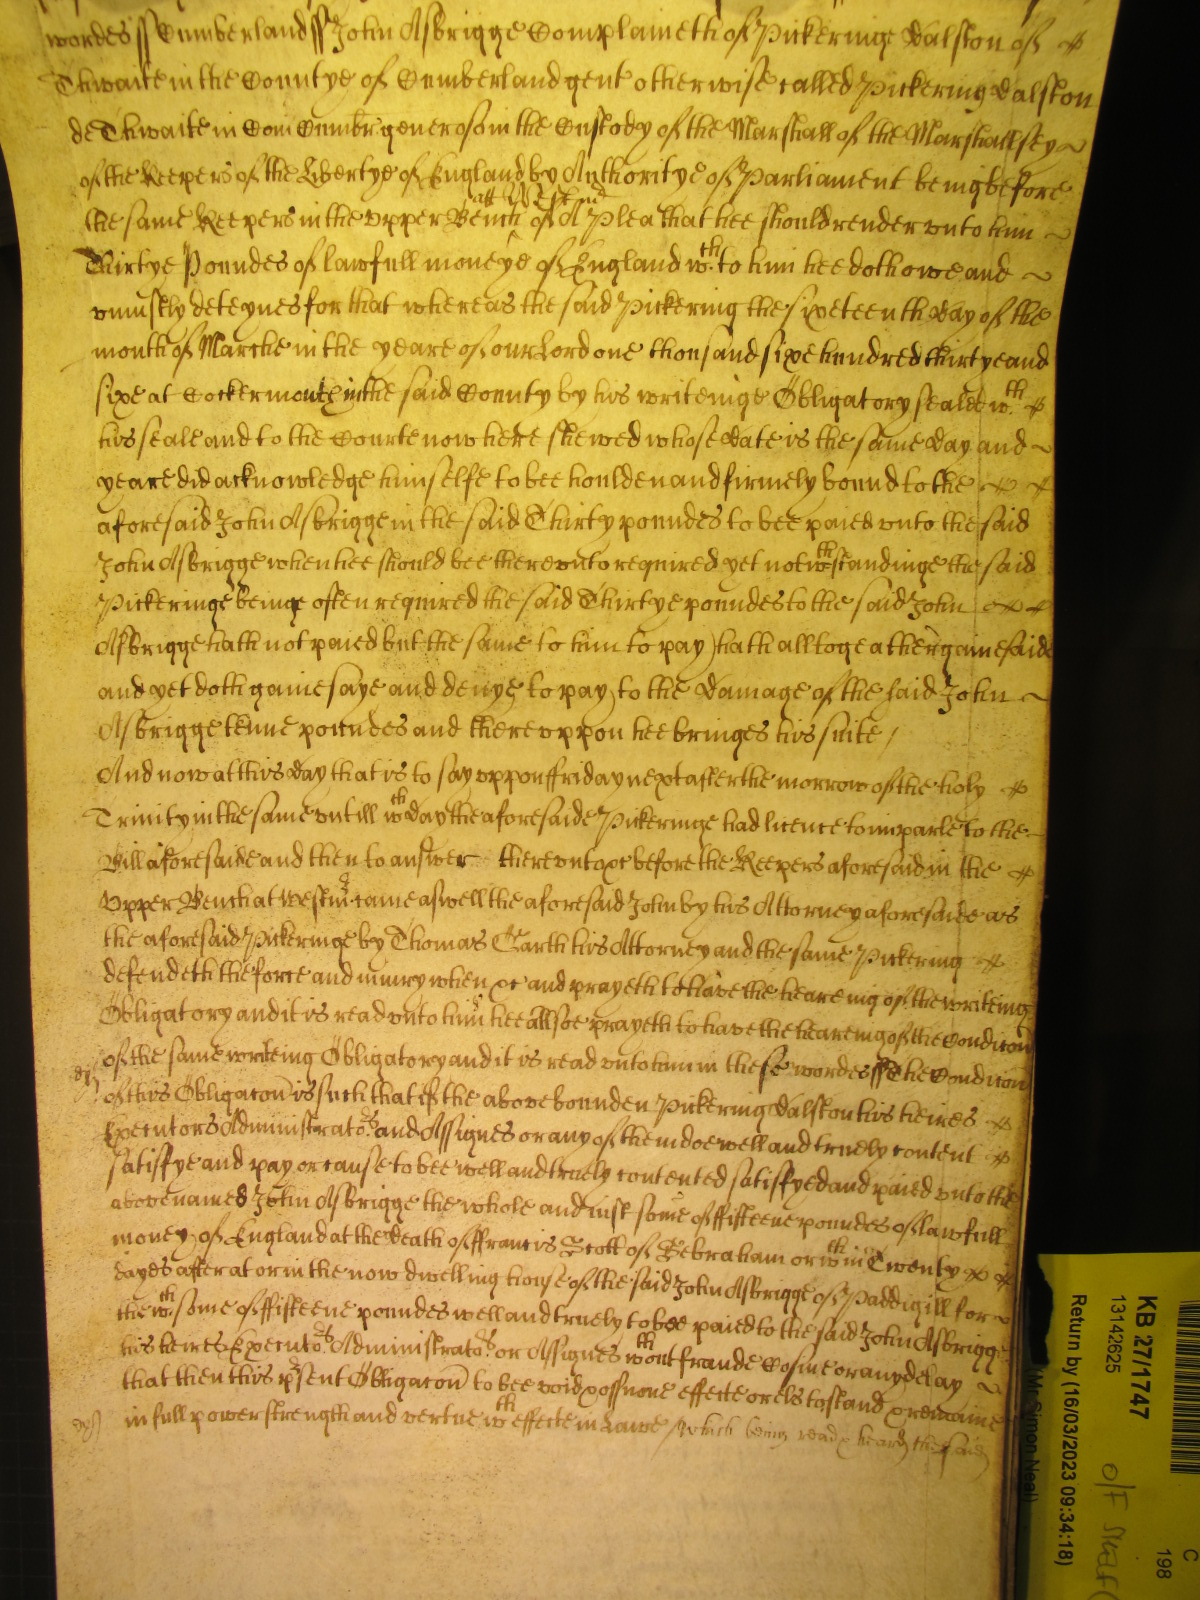 wordes ss Cumberland ss John Asbrigge Complaineth of Pickeringe Dalston of
Thwaite in the Countye of Cumberland gent otherwise called Pickering Dalston
de Thwaite in Com Cumbr generoso in the Custody of the Marshall of the Marshallsey
of the Keepers of the Libertye of England by Authoritye of Parliament being before
the same Keepers in the upper Bench att Westmr of A Plea that hee should render unto him
Thirtye Poundes of lawfull moneye of England wch to him hee doth owe and
uniustly deteynes for that whereas the said Pickering the sixeteenth day of the
month of Marche in the yeare of our Lord one thousand sixe hundred thirtye and
sixe at Cockermouth in the said County by his writeinge Obligatory sealed wth
his seale and to the Courte now here shewed whose date is the same day and
yeare did acknowledge himselfe to bee houlden and firmely bound to the
aforesaid John Asbrigge in the said Thirty poundes to bee paied unto the said
John Asbrigge when hee should bee thereunto required yet notwthstandinge the said
Pickeringe beinge often required the said Thirtye poundes to the said John
Asbrigge hath not paied but the same to him to pay hath alltogeather gainesaide
and yet doth gainesaye and denye to pay to the damage of the said John
Asbrigge tenne poundes and thereuppon hee bringes his suite /
And now at this day that is to say uppon ffriday next after the morrow of the holy
Trinity in the same untill wch day the aforesaide Pickeringe had licence to imparle to the
Bill aforesaide and then to answer thereunto &c before the Keepers aforesaid in the
Upper Bench at Westmr came aswell the aforesaid John by his Attorney aforesaide as
the aforesaid Pickeringe by Thomas Garth his Attorney and the same Pickering
defendeth the force and iniury when &c and prayeth to have the heareing of the writeing
Obligatory and it is read unto him hee allsoe prayeth to have the heareing of the Condicon
of the same writeing Obligatory and it is read unto him in these wordes ss The Condicon
of this Obligacon is such that if the above bounden Pickering Dalston his heires
Executors Administrators and Assignes or any of them doe well and truely content
satisfye and pay or cause to bee well and truely contented satisfyed and paied unto the
abovenamed John Asbrigge the whole and iust some of ffifteene poundes of lawfull
money of England at the death of ffrancis Scott of Sebraham or wthin Twenty
dayes after at or in the now dwelling house of the said John Asbrigge of Paddigill for
the wch some of ffifteene poundes well and truely to bee paied to the said John Asbrigge
his heires Executors Administrators or Assignes wthout fraude Cosine or any delay
that then this psent Obligacon to bee void & of none effecte or els to stand & remaine
in full power strength and vertue wth effecte in Lawe / Which being read & heard the said
KB 27/1747
13142625
Return by (16/03/2023 09:34:18)
(Mr Simon Neal)
C
198